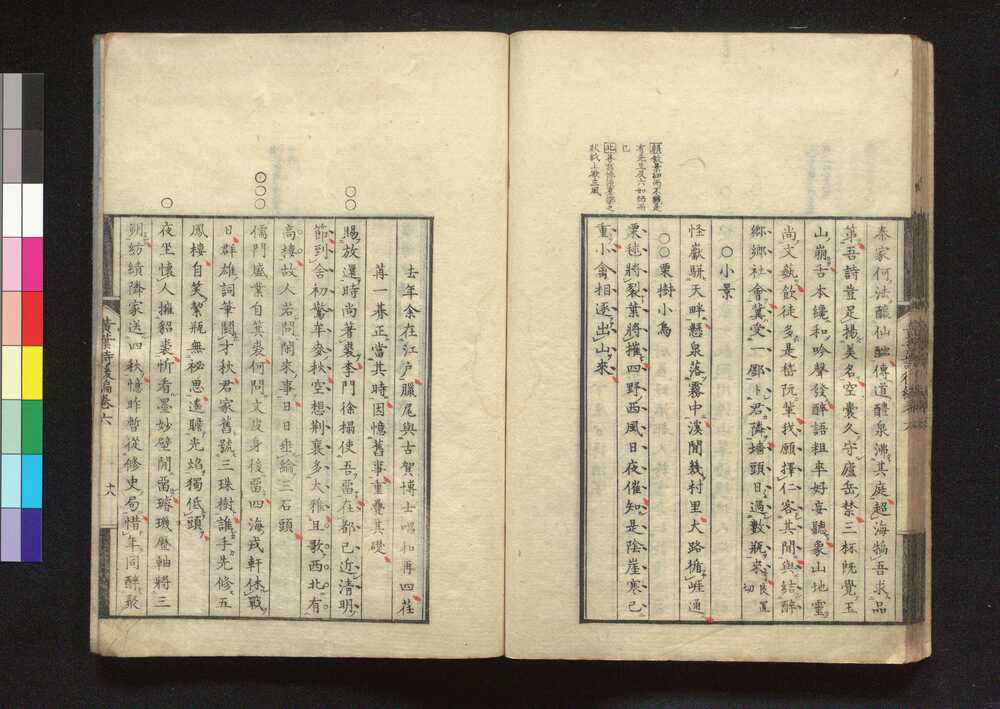 秦家何法釀仙醞傳道醴泉沸其庭超海犒吾求品
第吾詩豈足揚美名空囊久守廬岳禁三杯既覺玉
山崩舌本纔和吟聲發醉語粗率好妄聽象山地靈
尚文執飲徒多是嵆阮輩我願擇仁客其間與結醉
鄉鄉社會冀受一廛卜君隣墻頭日過數瓶來
小景
怪巖駢天畔懸泉落霧中溪間幾村里大路循崕通
栗樹小鳥
栗毬將裂葉將摧四野西風日夜催知是陰崖寒已
重小禽相逐出山來
去年余在江戶臘尾與古賀博士唱和再四荏
苒一朞正當其時因憶舊事重疊其礎
賜放還時尚著裘李門徐榻使吾留在都已近清明
節到舍初驚牟麥秋空想荆襄多大雅且歌西北有
高樓故人若問閒來事日日垂綸三石頭
儒門盛業自箕裘何問文皮身後留四海戎軒休戰
日群雄詞筆鬪才秋君家舊號三珠樹誰手先修五
鳳樓自笑挈瓶無祕思遙瞻光焰獨低頭
夜坐懷人擁貂裘忻看墨妙壁間留璿璣歷軸將三
朔紡績隣家送四秋憶昨暫從修史局惜年同醉聚
黃葉詩後編卷六
十八